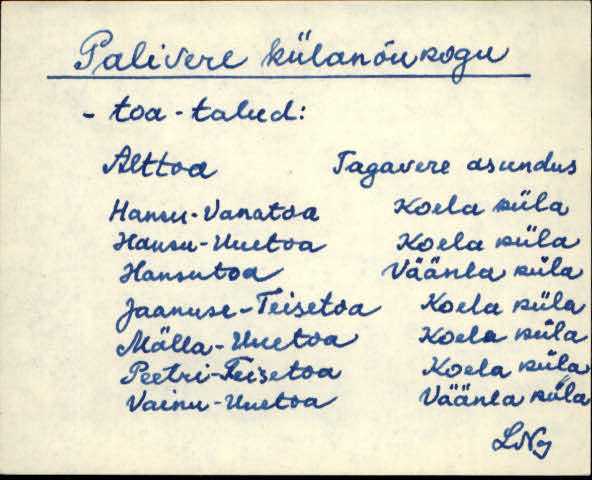 Palivere külanõukogu
- toa - talud:
Alttoa Tagavere asundus
Hansu-Vanatoa Koela küla
Hansu-Uuetoa Koela küla
Hansutoa Väänla küla
Jaanuse-Teisetoa Koela küla
Mälla-Uuetoa Koela küla
Peetri-Teisetoa Koela küla
Vainu-Uuetoa Väänla küla